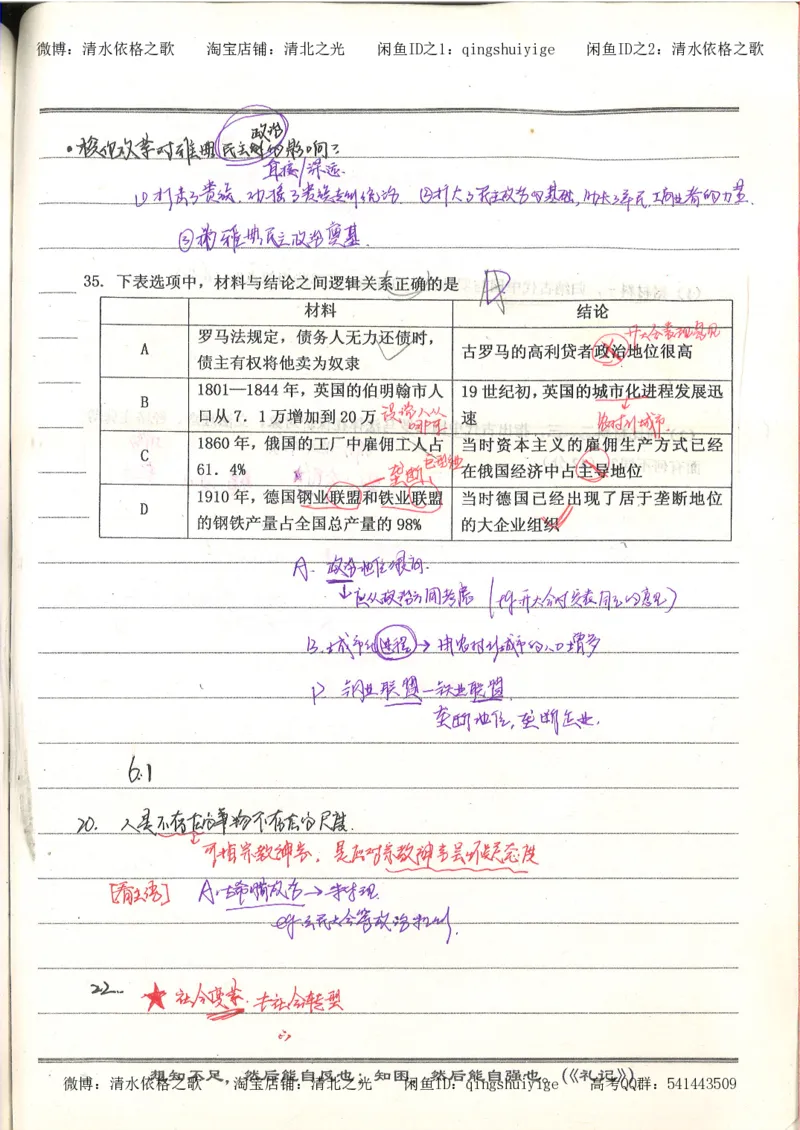 微博：清水依格之歌 淘宝店铺：清北之光 闲鱼ID之1：qingshuiyige 闲鱼ID之2：清水依格之歌
政治
对雅典民主 的影响？
直接/深远
①打击了贵族，动摇了贵族专制统治 ②扩大了民主政治的基础，助长了平民工商业者的力量
③为雅典民主政治奠基.
35. 下表选项中，材料与结论之间逻辑关系正确的是 D
材料 结论
A 罗马法规定，债务人无力还债时，债主有权将他卖为奴隶 古罗马的高利贷者政治地位很高
B 1801—1844 年，英国的伯明翰市人口从 7．1 万增加到 20 万 19 世纪初，英国的城市化进程发展迅速
农村到城市
C 1860 年，俄国的工厂中雇佣工人占 61．4% 当时资本主义的雇佣生产方式已经在俄国经济中占主导地位
垄断
D 1910 年，德国钢业联盟和铁业联盟的钢铁产量占全国总产量的 98% 当时德国已经出现了居于垄断地位的大企业组织
A. 政治地位很高.
↓应从政治方面考虑
B. 城市化进程→ 由农村到城市的人口增多
D 钢业联盟—铁业联盟
垄断地位，垄断企业.
6.1
20. 人是不存在的事物不存在的尺度.
可指宗教神学，是后对宗教神学是怀疑态度
A.
公民大会等政治机制.
22.. ★ 社会变革. 去社会转型
想知不足，然后能自反也；知困，然后能自强也。(《礼记》)
微博：清水依格之歌 淘宝店铺：清北之光 闲鱼ID：qingshuiyige 高考QQ群：541443509